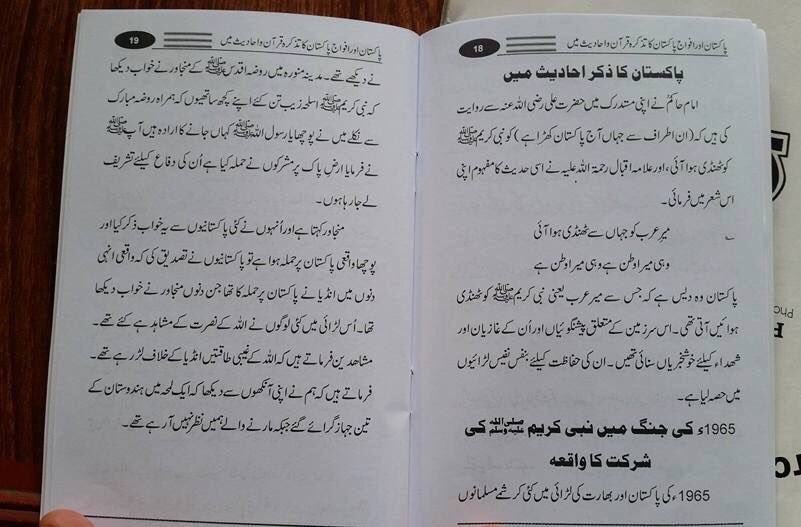 پاکستان اور افواج پاکستان کا تذکرہ قرآن و احادیث میں
18
پاکستان کا ذکر احادیث میں
امام حاکمؒ نے اپنی مستدرک میں حضرت علی رضی اللہ عنہ سے روایت
کی ہیں کہ (ان اطراف سے جہاں آج پاکستان کھڑا ہے) کو نبی کریم ﷺ
کو ٹھنڈی ہوا آئی، اور علامہ اقبال رحمۃ اللہ علیہ نے اسی حدیث کا مفہوم اپنی
اس شعر میں فرمائی۔
میرِ عرب کو جہاں سے ٹھنڈی ہوا آئی
وہی میرا وطن ہے وہی میرا وطن ہے
پاکستان وہ دیس ہے کہ جس سے میر عرب یعنی نبی کریم ﷺ کو ٹھنڈی
ہوائیں آتی تھی۔ اس سرزمین کے متعلق پیشنگوئیاں اور اُن کے غازیان اور
شھداء کیلئے خوشخبریاں سنائی تھیں۔ ان کی حفاظت کیلئے بنفس نفیس لڑائیوں
میں حصہ لیا ہے۔
1965ء کی جنگ میں نبی کریم ﷺ کی
شرکت کا واقعہ
1965ء کی پاکستان اور بھارت کی لڑائی میں کئی کرشمے مسلمانوں
پاکستان اور افواج پاکستان کا تذکرہ قرآن و احادیث میں
19
نے دیکھے تھے۔ مدینہ منورہ میں روضہ اقدس ﷺ کے مجاور نے خواب دیکھا
کہ نبی کریم ﷺ اسلحہ زیب تن کئے اپنے کچھ ساتھیوں کہ ہمراہ روضہ مبارک
سے نکلے میں نے پوچھا یا رسول اللہ ﷺ کہاں جانے کا ارادہ ہیں آپ ﷺ
نے فرمایا ارض پاک پر مشرکوں نے حملہ کیا ہے اُن کی دفاع کیلئے تشریف
لے جا رہا ہوں۔
مجاور کہتا ہے اور اُنہوں نے کئی پاکستانیوں سے یہ خواب ذکر کیا اور
پوچھا واقعی پاکستان پر حملہ ہوا ہے تو پاکستانیوں نے تصدیق کی کہ واقعی انہی
دنوں میں انڈیا نے پاکستان پر حملہ کا تھا جن دنوں مجاور نے خواب دیکھا
تھا۔ اُس لڑائی میں کئی لوگوں نے اللہ کے نصرت کے مشاہد ہے کئے تھے۔
مشاھدین فرماتے ہیں کہ اللہ کے غیبی طاقتیں انڈیا کے خلاف لڑ رہے تھے۔
فرماتے ہیں کہ ہم نے اپنی آنکھوں سے دیکھا کہ ایک لمحہ میں ہندوستان کے
تین جہاز گرائے گئے جبکہ مارنے والے ہمیں نظر نہیں آ رہے تھے۔